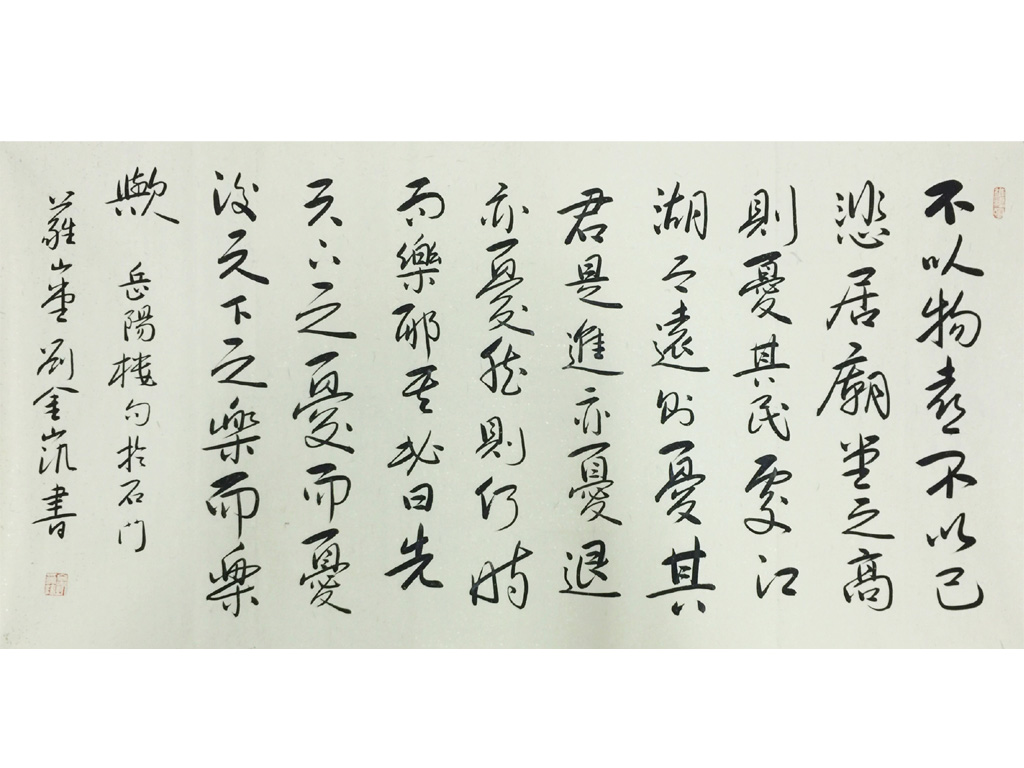 不以物喜不以己
悲居廟堂之高
則憂其民處江
湖之遠則憂其
君是進亦憂退
亦憂然則何時
而樂耶吾必曰先
天下之憂而憂
後天下之樂而樂
歟 岳陽樓句於石门
蘿山堂劉金書